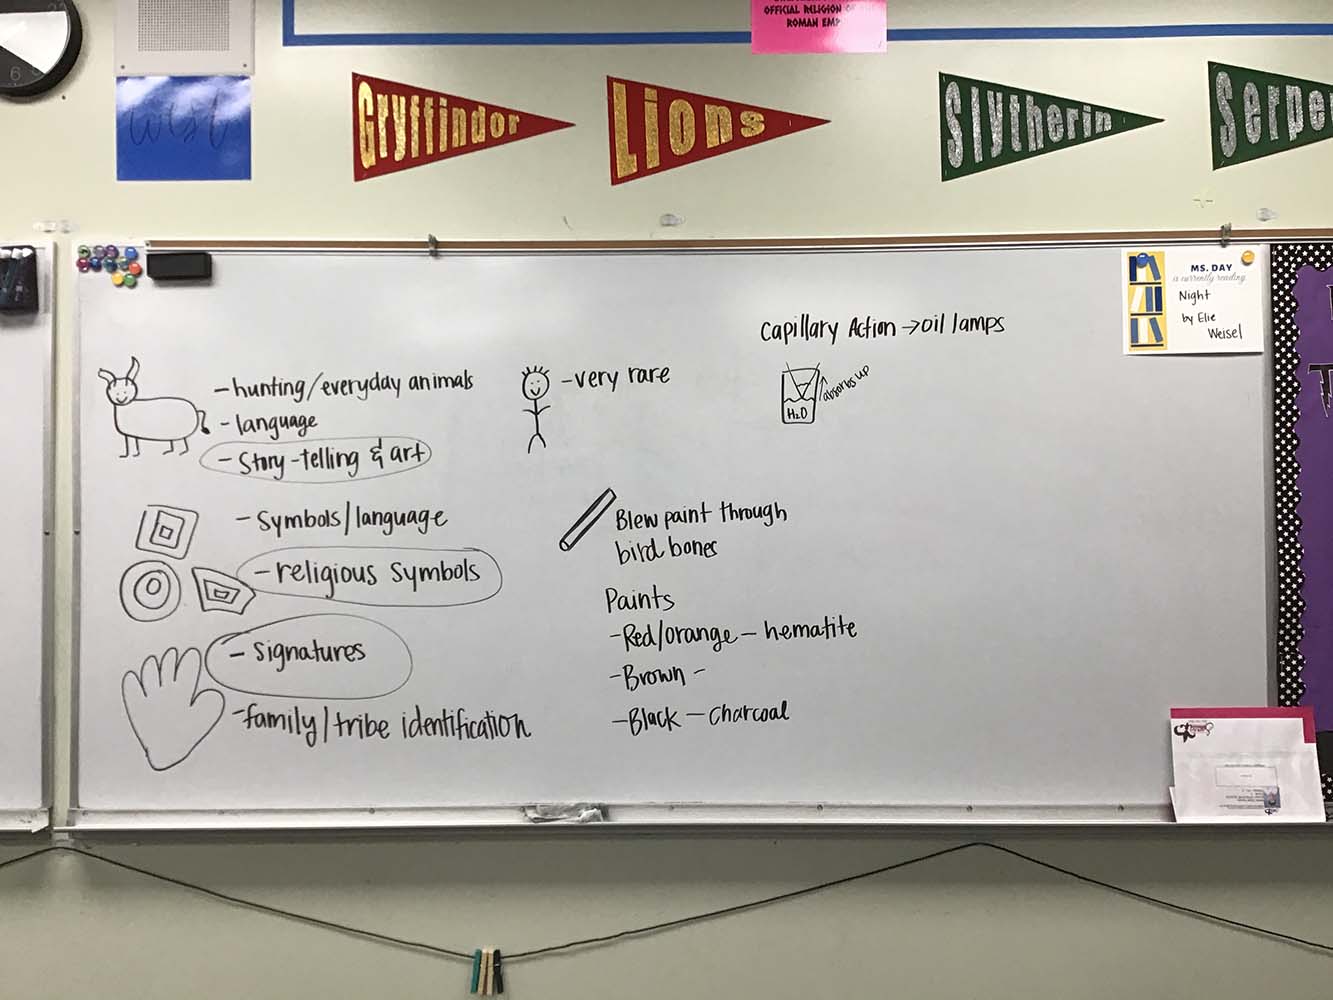 OFFICIAL RELIGION
ROMAN
west
Gryffindor
Lions
Slytherin
Serpe
MS. DAY
is currently reading
Night
by Elie
Weisel
Capillary Action → oil lamps
H2O
absorbs up
- hunting/everyday animals
- language
- Story-telling & art
- very rare
- Symbols/language
- religious symbols
- signatures
- family/tribe identification
Blew paint through
bird bones
Paints
- Red/orange - hematite
- Brown -
- Black - charcoal